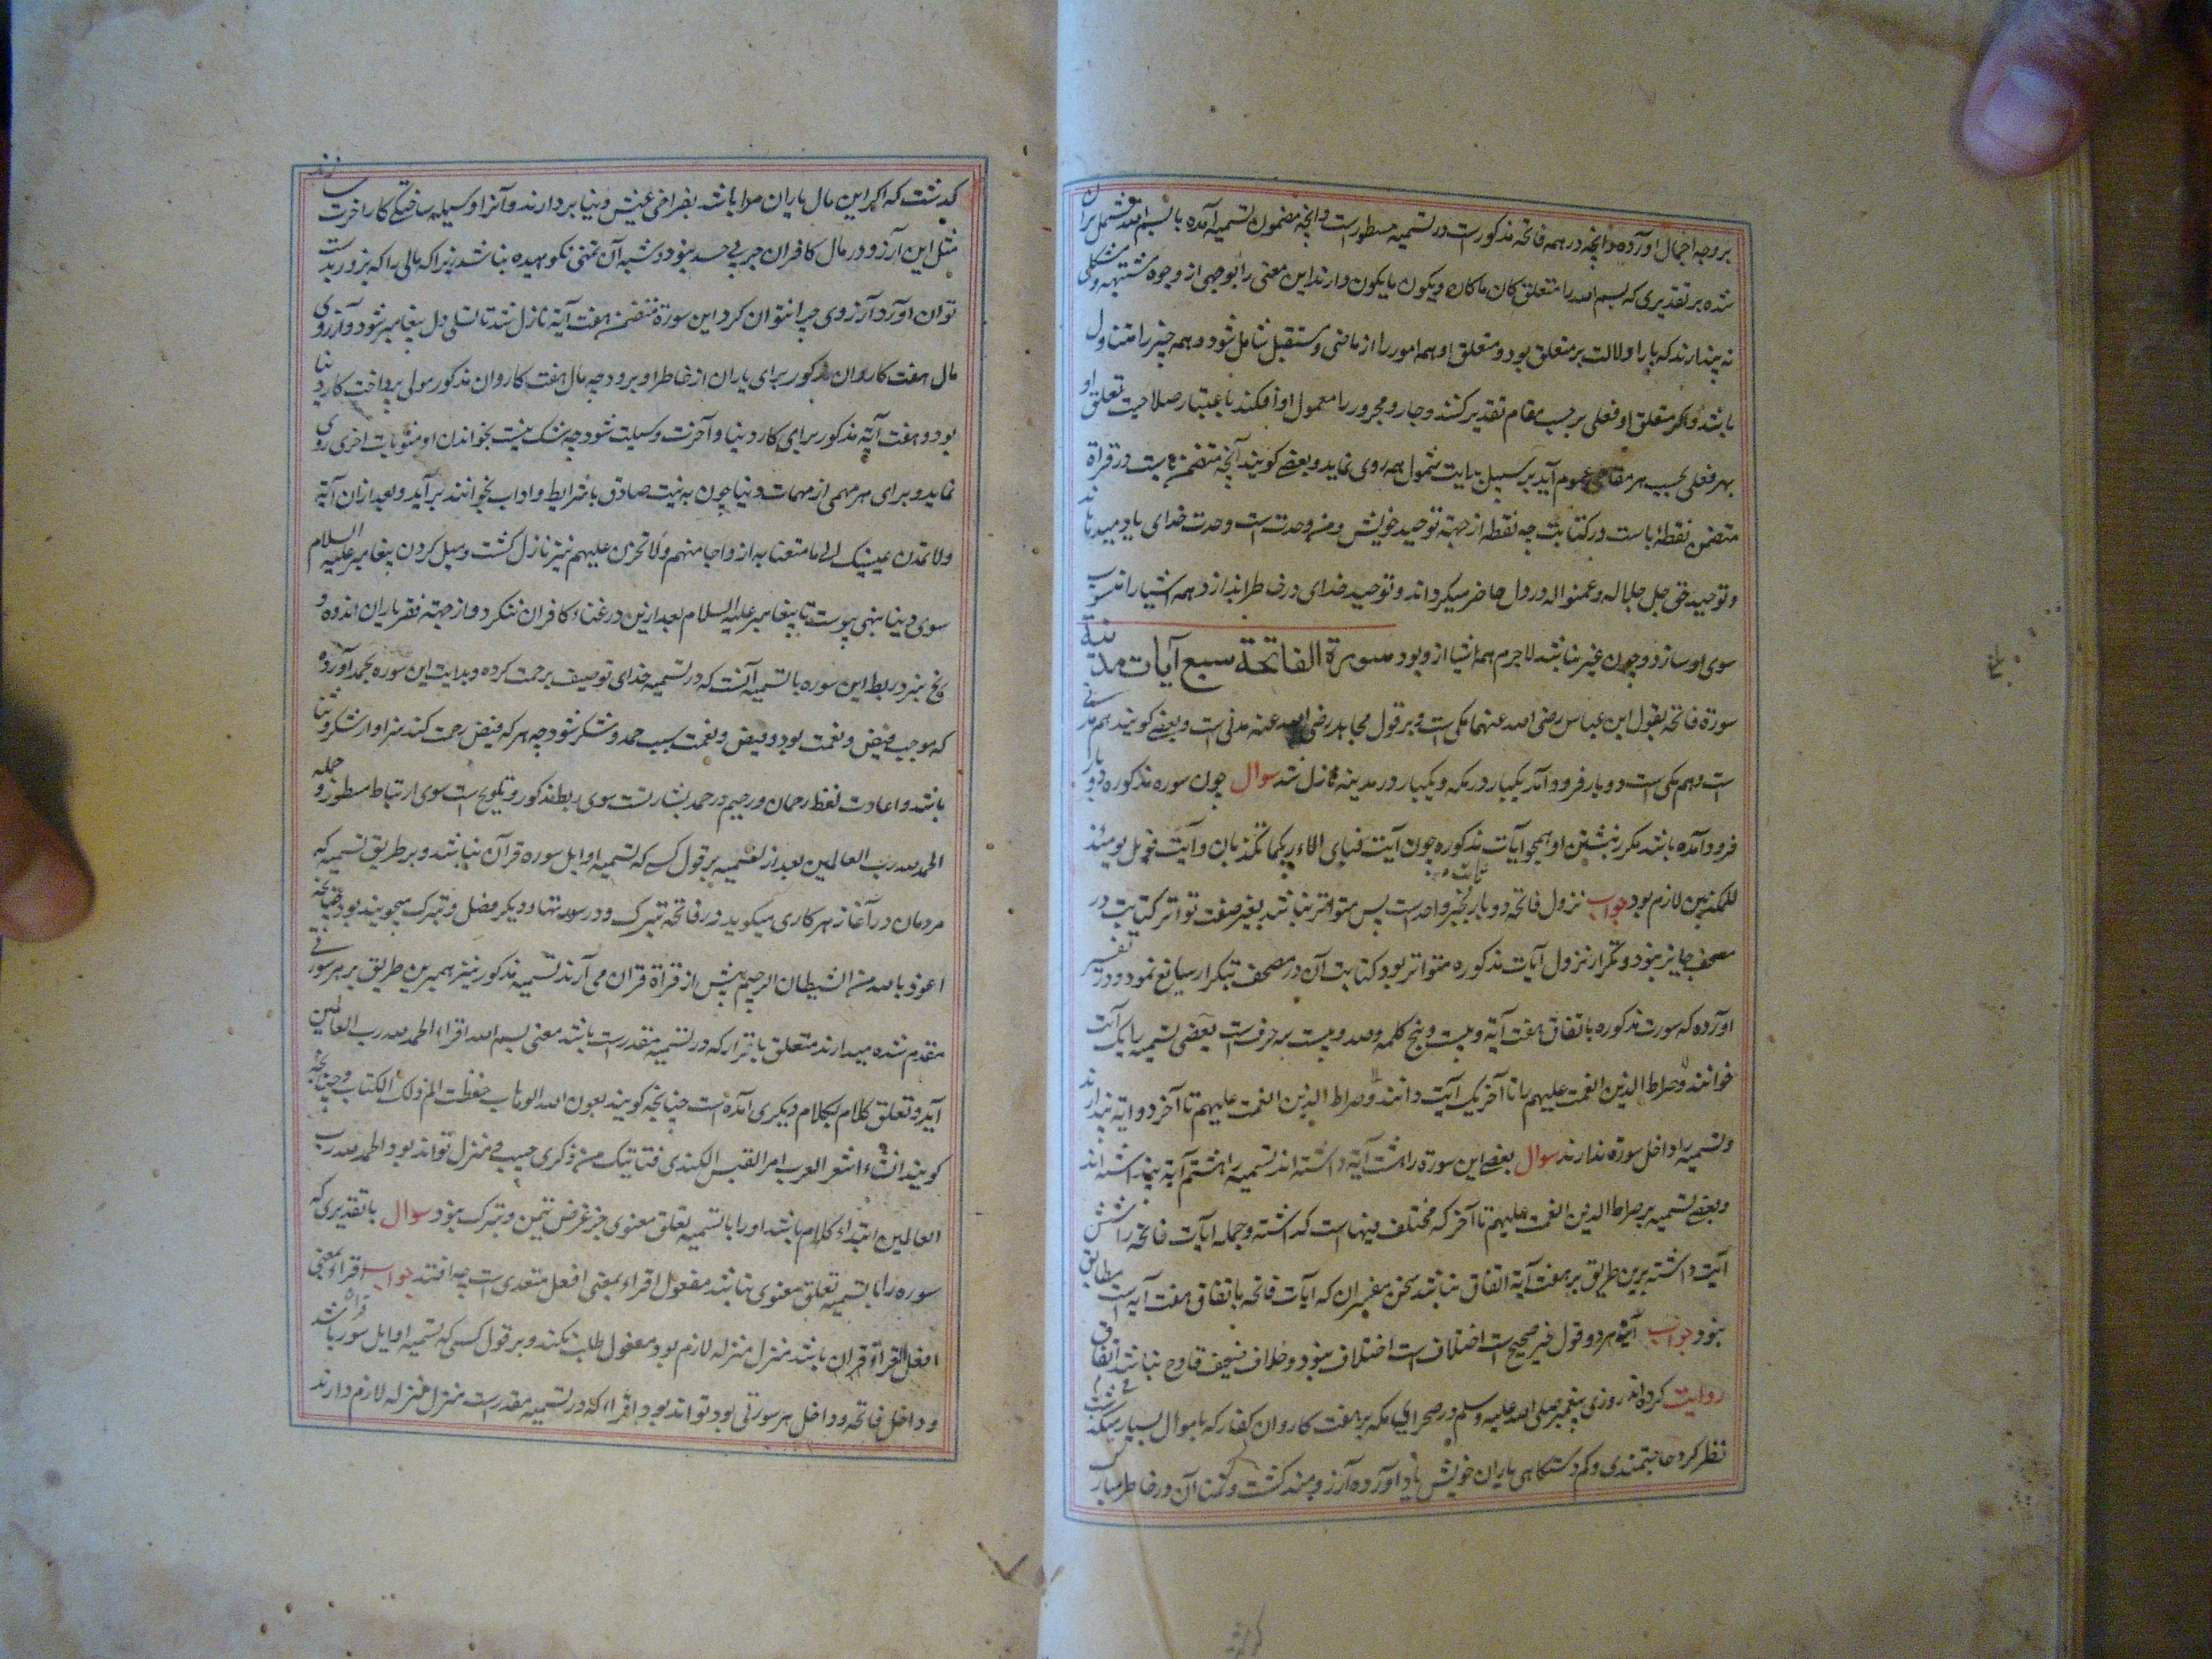 بر وجه اجمال آورده و آنچه در همه فاتحه مذکور است در تسمیه مسطور است و آنچه مضمون تسمیه آمده با بسم الله مشتمل بران
شده بر تقدیری که بسم الله را متعلق کان ما کان و یکون ما یکون دارند این معنی را بوجهی از وجوه مشتبهه و مشکلی
نه پندارند که با را دلالت بر متعلق بود و متعلق او همه امور را از ماضی و مستقبل شامل شود و همه چیز را متناول
باشد و اگر متعلق او فعلی بر حسب مقام تقدیر کنند و جار و مجرور را معمول او افکند باعتبار صلاحیت تعلق او
بهر فعلی بحسب هر مقامی عموم آید بر سبیل بدایت شمول همه روی نماید و بعضی کویند آنچه متضمن با است در قراة
متضمن نقطۀ با است در کتابت چه نقطه از جهة توحید خویش و منه وحدت است وحدت خدای یاد میدهاند
و توحید حق جل جلاله و عم نواله در دل حاضر میکرداند و توحید خدای در خاطر اندازد همه اشیا را منسوب
سوی او سازد و چون غیر نباشد لاجرم همه اشیا از و بود سورة الفاتحة سبع آیات مدنیة
سورة فاتحه بقول ابن عباس رضی الله عنهما مکی است و بر قول مجاهد رضی الله عنه مدنی است و بعضی کویند هم مدنی
است و هم مکی است دو بار فرود آمد یکبار در مکه و یکبار در مدینه نازل شد سوال چون سوره مذکوره دو بار
فرود آمده باشد مکرر نبشتن او همچو آیات مذکوره چون آیت فبای الاء ربکما تکذبان و آیت فویل یومئذ
للمکذبین لازم بود جواب نزول فاتحه دو بار بخبر واحد ثابت است پس متواتر نباشد بغیر صفت تواتر کتابت در
مصحف جایز نبود و تکرار نزول آیات مذکوره متواتر بود کتابت آن در مصحف بتکرار سایغ نمود و در تفسیر
آورده که سورت مذکوره باتفاق هفت آیة و بیست و پنج کلمه و صد و بیست و سه حرف است بعضی تسمیه را یک آیت
خوانند و صراط الذین انعمت علیهم را تا آخر یک آیت دانند و صراط الذین انعمت علیهم تا آخر دو آیه پندارند
و تسمیه را داخل سورة ندارند سوال بعضی این سورة را هشت آیة داشته اند تسمیه را هشتم آیة پنداشته اند
و بعضی تسمیه بر صراط الذین انعمت علیهم تا آخر که مختلف فیها است کداشته و جمله آیات فاتحه را شش
آیت داشته برین طریق بر هفت آیة اتفاق نباشد سخن مفسران که آیات فاتحه باتفاق هفت آیه است مطابق
نبود جواب هر دو قول غیر صحیح است اختلاف است اختلاف نبود و خلاف ضعیف قادح نباشد اتفاق
روایت کرده اند روزی پیغمبر صلی الله علیه وسلم در صحرای مکه بر هفت کاروان کفار که باموال بسیار میکذشت
نظر کرد حاجتمندی و کم دستکاهی یاران خویش یاد آورده آرزومند کشت و تمنا آن در خاطر مبارک
کدشت که اکر این مال یاران مرا باشد بفراخی عیش دنیا بردارند و آنرا وسیله ساختکی کار آخرت سازند
مثل این آرزو در مال کافران حربی حسد نبود و شبه آن تمنی نکوهیده نباشد زیرا که مالی را که بزور بدست
توان آورد آرزوی چرا نتوان کرد این سورة متضمن هفت آیة نازل شد تا تسلی دل پیغامبر شود و آرزوی
مال هفت کاروان مذکور برای یاران از خاطر او برود چه مال هفت کاروان مذکور مولی پرداخت کار دنیا
بود و هفت آیة مذکور برای کار دنیا و آخرت وسیلت شود چه شک نیست بخواندن او مثوبات اخری روی
نماید و برای هر مهمی از مهمات دنیا چون به نیت صادق باشرایط و اداب بخوانند بر آید و بعد ازان آیة
ولا تمدن عینیک الی ما متعنا به ازواجا منهم ولا تحزن علیهم نیز نازل کشت و میل کردن پیغامبر علیه السلام
سوی دنیا بنهی پیوست تا پیغامبر علیه السلام بعد ازین در غناء کافران ننکرد و از جهة فقر یاران اندوه و
رنج نبرد ربط این سوره با تسمیه آنست که در تسمیه خدای توصیف برحمت کرده و بدایت این سوره بحمد آورده
که موجب فیض و نعمت بود و فیض و نعمت سبب حمد و شکر شود چه هر که فیض رحمت کند سزاوار شکر و ثنا
باشد و اعادت لفظ رحمان و رحیم در حمد بشارت سوی ربط مذکور و تلویح است سوی ارتباط مسطور و جمله
الحمد لله رب العالمین بعد از تسمیه بر قول کسی که تسمیه اوایل سوره قرآن نباشد و بر طریق تسمیه که
مردمان در آغاز هر کاری میکوید در فاتحه تبرک و در سورتها و دیکر فضل و تبرک میجویند بود چنانچه
اعوذ بالله من الشیطان الرجیم پیش از قراة قران می آرند تسمیه مذکور نیز همبرین طریق بر هر سورتی
مقدم شده میدارند متعلق باقرا که در تسمیه مقدر است باشد معنی بسم الله اقراء الحمد لله رب العالمین
آید و تعلق کلام بکلام دیکری آمده است چنانچه کویند بعون الله الوهاب حفظت الم ذلک الکتاب و چنانچه
کویند انشاء اشعر العرب امرا القیس الکندی قفا نبک من ذکری حبیب و منزل تواند بود الحمد لله رب
العالمین ابتداء کلام باشد او را با تسمیه تعلق معنوی جز غرض تیمن و تبرک نبود سوال باتقدیری که
سوره را با تسمیه تعلق معنوی نباشد مفعول اقراء بمعنی افعل متعدی است چه افتد جواب اقراء بمعنی
افعل القراة قران باشد منزل منزله لازم بود مفعول طلب نکند و بر قول کسی که تسمیه اوایل سور باشد
و داخل فاتحه و داخل هر سورتی بود تواند بود اقراء که در تسمیه مقدر است منزل منزله لازم دارند